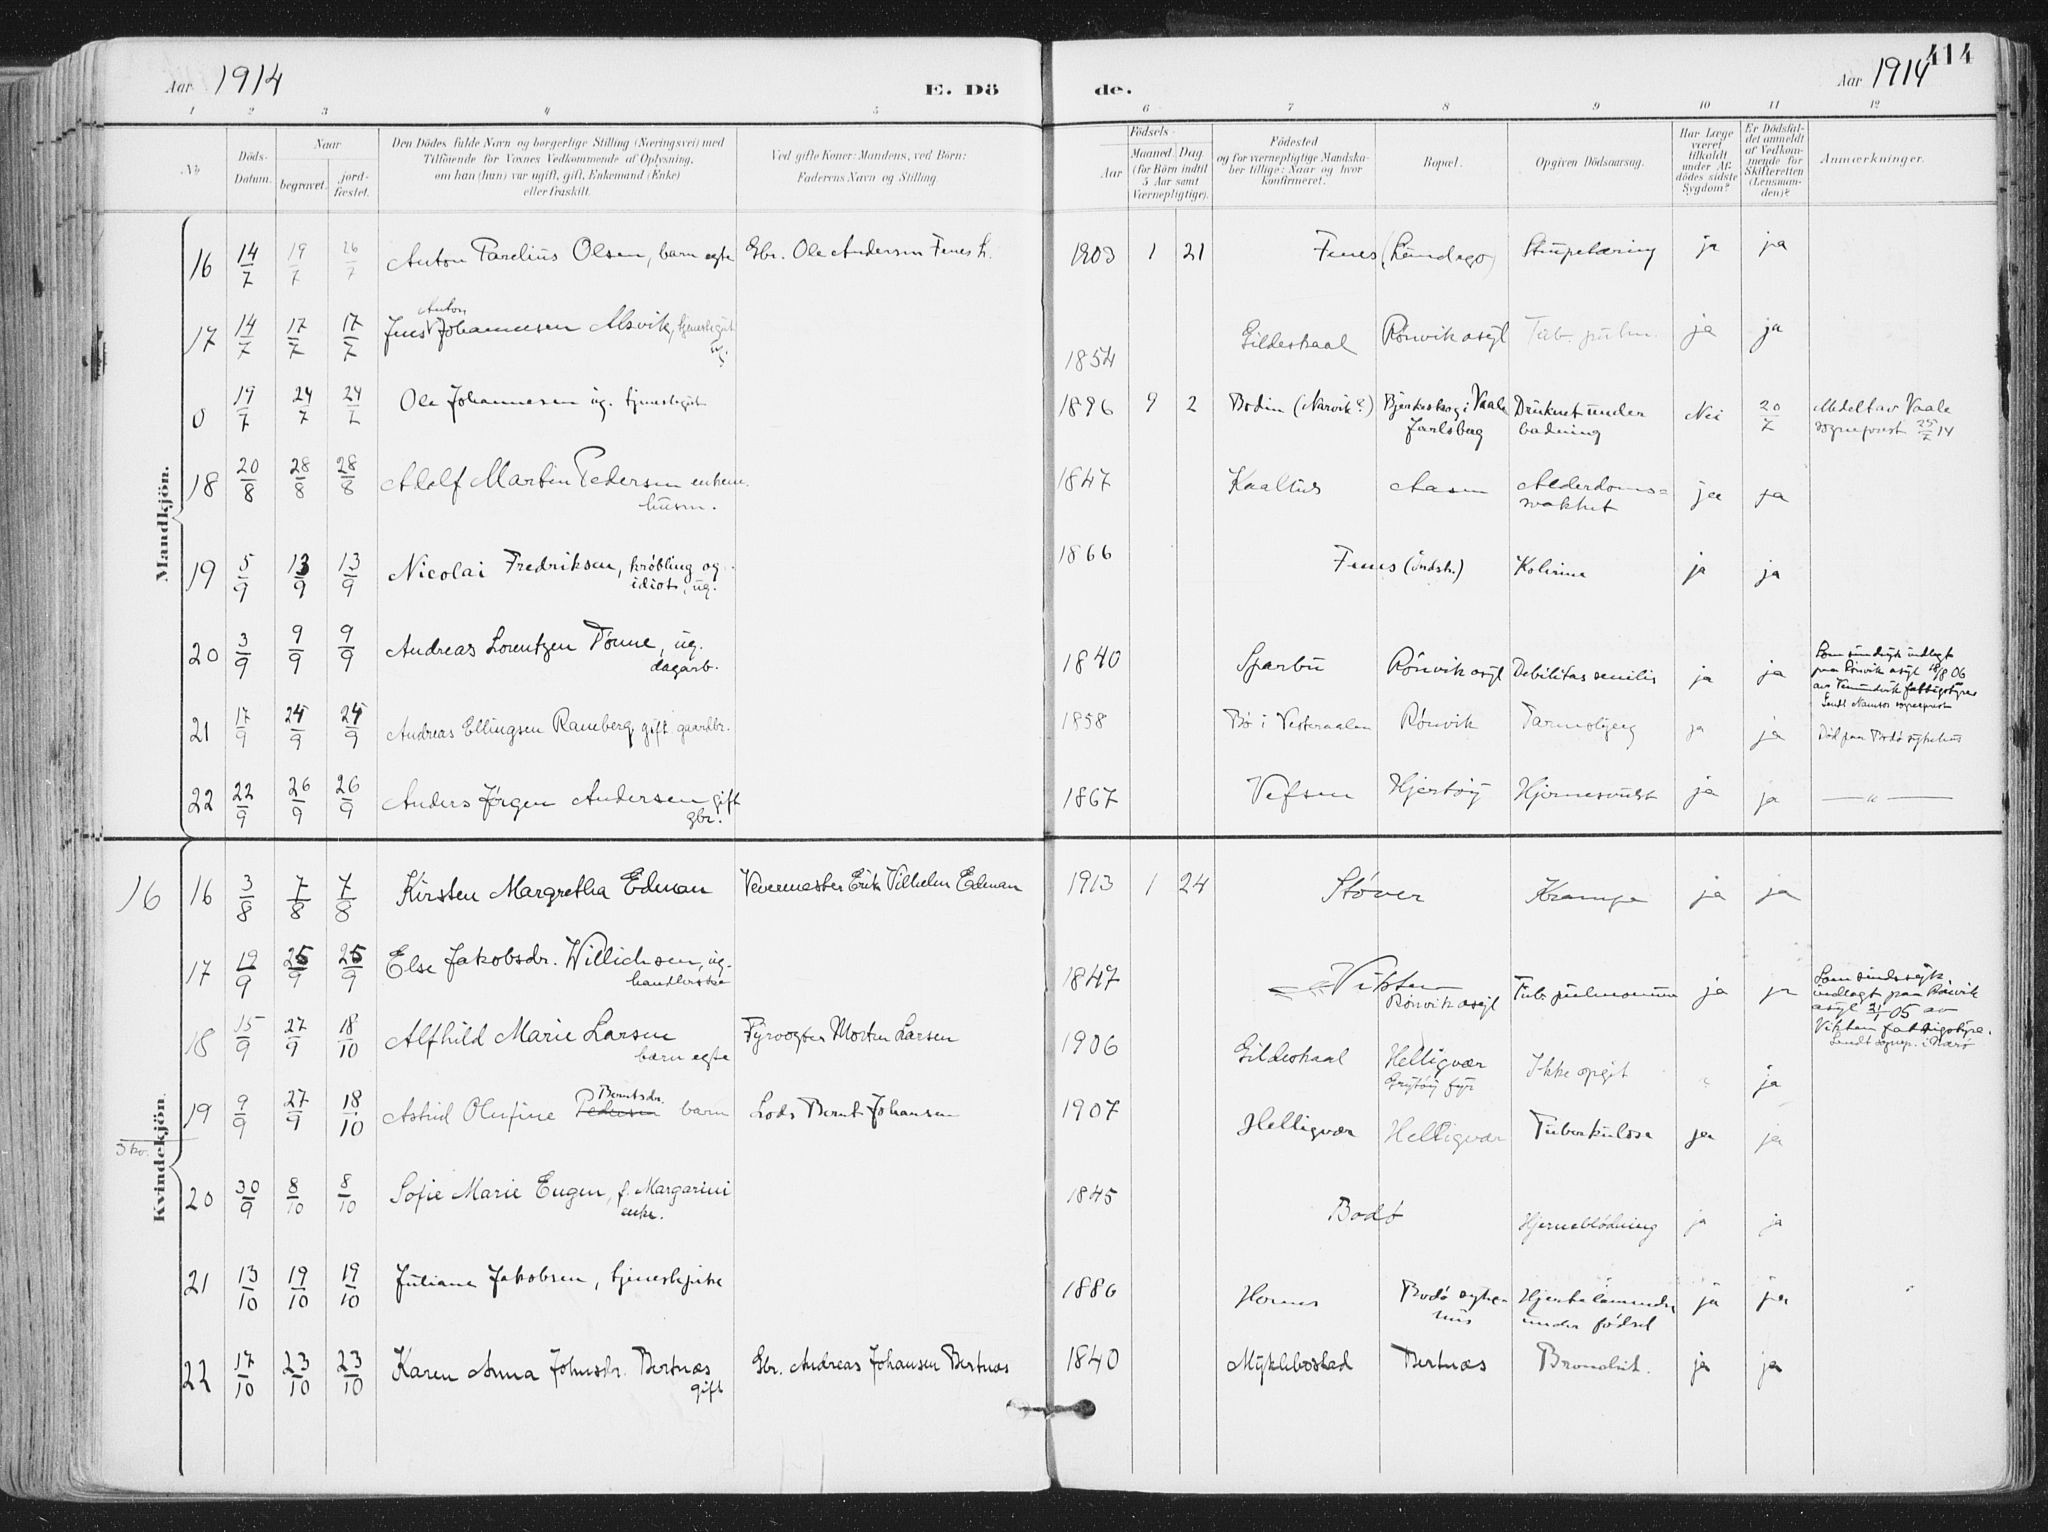 Aar 1914
E. Dö
de.
Aar 1914
414
1 2 3 4 5 6 7 8 9 10 11 12
No
Döds-
Datum.
Naar
begravet.
jord-
fæstet.
Den Dödes fulde Navn og borgerlige Stilling (Næringsvei) med
Tilföiende for Voxnes Vedkommende af Oplysning,
om han (hun) var ugift, gift, Enkemand (Enke)
eller fraskilt.
Ved gifte Koner: Mandens, ved Börn:
Faderens Navn og Stilling.
Födsels-
Aar
Maaned. Dag
(for Börn indtil
5 Aar samt
Værnepligtige).
Födested
og for værnepligtige Mandska-
ber tillige: Naar og hvor
konfirmeret.
Bopæl.
Opgiven Dödsaarsag.
Har Læge
været
tilkaldt
under Af-
dödes sidste
Sygdom?
Er Dödsfal-
det anmeldt
af Vedkom-
mende for
Skifteretten
(Lensman-
den)?
Anmærkninger.
Mandkjön.
16 14/7 19/7 26/7 Anton Parelius Olsen, barn egte Gbr. Ole Andersen Fenes 1903 1 21 Fenes Strupetæring ja ja
17 14/7 17/7 17/7 Jens Johannessen Alsvik, tjenestegut 1854 Gildeskaal Rønvik asyl Tub. pulm. ja ja
Anton
ug.
0 19/7 24/7 24/7 Ole Johannesen ug. tjenestegut 1896 9 2 Bodin (Narvik?) Bjerkeskog i Vaale Druknet under Nei 20/7 Meddelt av Vaale
Jarlsberg badning sogneprest 25/7 14
18 20/8 28/8 28/8 Adolf Martin Pedersen enkem. 1847 Kaalhus Aasen Alderdoms- ja ja
husm. svakhet
19 5/9 13/9 13/9 Nicolai Fredriksen, krøbling og 1866 Fenes (indstr.) Kolerine ja ja
idiot, ug.
20 3/9 9/9 9/9 Andreas Lorentzen Tønne, ug. 1840 Sparbu Rønvik asyl Debilitas senilis ja ja Som sindssyk indlagt
dagarb. paa Rønvik asyl 18/8 06
av fattigstyre
Sendt Namsos sogneprest
21 17/9 24/9 24/9 Andreas Ellingsen Ramberg gift gaardbr. 1858 Bø i Vesteraalen Rønvik Tarmslyng ja ja Død paa Bodø sykehus
22 22/9 26/9 26/9 Anders Jørgen Andersen gift 1867 Vefsen Hjertøy Hjernesvulst ja ja — „ —
gbr.
Kvindekjön.
16 16 3/8 7/8 7/8 Kirsten Margretha Edman Vevermester Erik Vilhelm Edman 1913 1 24 Støver Krampe ja ja
17 19/9 25/9 25/9 Else Jakobsdr. Willichsen, ug. 1847 Vikten Tub. pulmonum ja ja Som sindssyk
handlerske Rønvik asyl indlagt paa Rønvik
asyl 21/1 05 av
Vikten fattigstyre.
Sendt sognep. i Nærø
18 15/9 27/9 18/10 Alfhild Marie Larsen Fyrvogter Morten Larsen 1906 Gildeskaal Helligvær Ikke opgit „ ja
barn egte Grytøy fyr
19 9/9 27/9 18/10 Astrid Olufine Pedersen barn Lods Bernt Johansen 1907 Helligvær Helligvær Tuberkulose ja ja
Berntsdr.
3 kv.
20 30/9 8/10 8/10 Sofie Marie Eugen, f. Margarini 1845 Bodø Hjerneblødning ja ja
enke.
21 13/10 19/10 19/10 Juliane Jakobsen, tjenestepike 1886 Hernes Bodø syke- Hjertelammelse ja ja
hus under fødsel
22 17/10 23/10 23/10 Karen Anna Johnsdr. Bertnæs Gbr. Andreas Johansen Bertnæs 1840 Myklebostad Bertnæs Bronchit. ja ja
gift